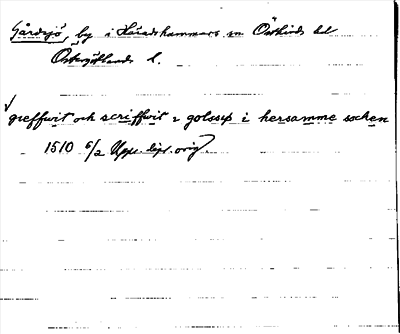 Gårdsjö, by i Häradshammars sn Östkinds hd
Östergötlands l.
greffwit och scriffwit i golossiö i hersamme socken
1510 6/2 Upps. dipl. orig.